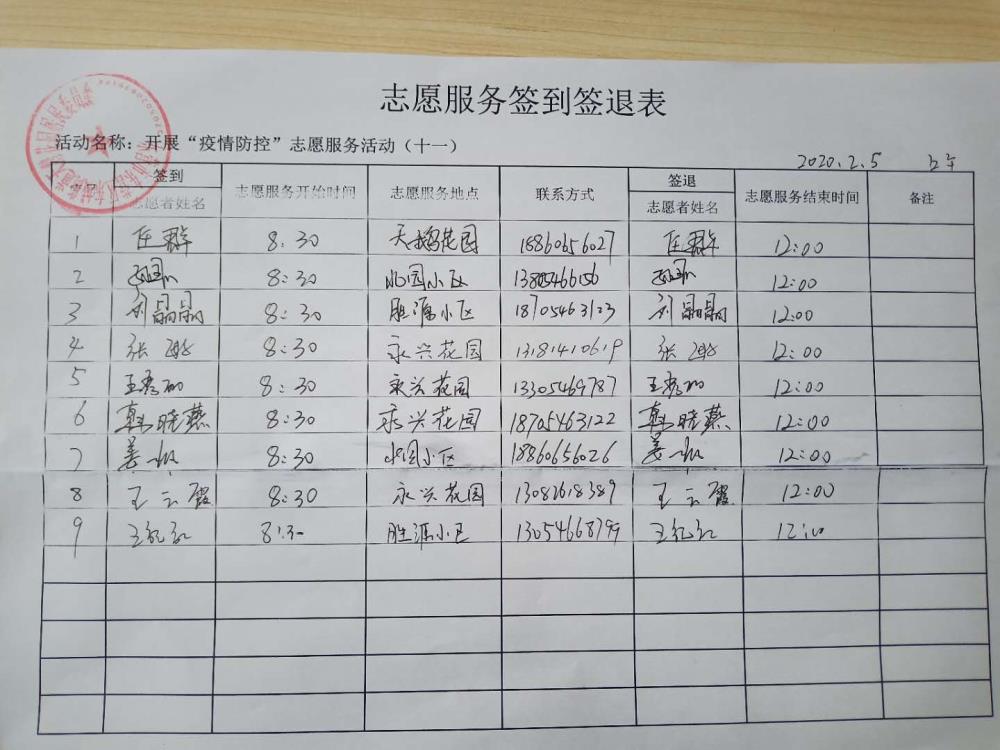 志愿服务签到签退表
活动名称：开展“疫情防控”志愿服务活动（十一）
2020.2.5 上午
签到 志愿服务开始时间 志愿服务地点 联系方式 签退 志愿服务结束时间 备注
志愿者姓名 志愿者姓名
1 任群 8:30 天鹅花园 18860656027 任群 12:00
2 8:30 水园小区 13805466156 12:00
3 刘晶晶 8:30 胜源小区 18705463123 刘晶晶 12:00
4 张 8:30 永兴花园 13181410619 张 12:00
5 王秀 8:30 永兴花园 13305469787 王秀 12:00
6 韩晓燕 8:30 永兴花园 18705463122 韩晓燕 12:00
7 姜 8:30 水园小区 18860656026 姜 12:00
8 王云霞 8:30 永兴花园 王云霞 12:00
9 王红红 8:30 胜源小区 13054668799 王红红 12:00